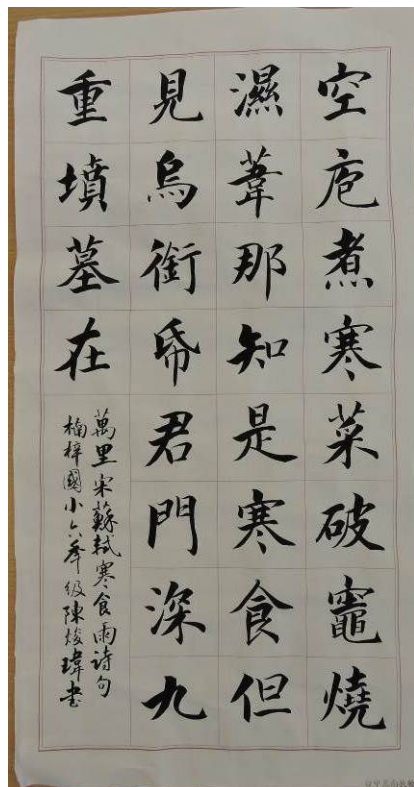 空庖煮寒菜破竈燒
濕葦那知是寒食但
見烏銜帋君門深九
重墳墓在
萬里宋蘇軾寒食雨詩句
楠梓國小六年級陳焌瑋书